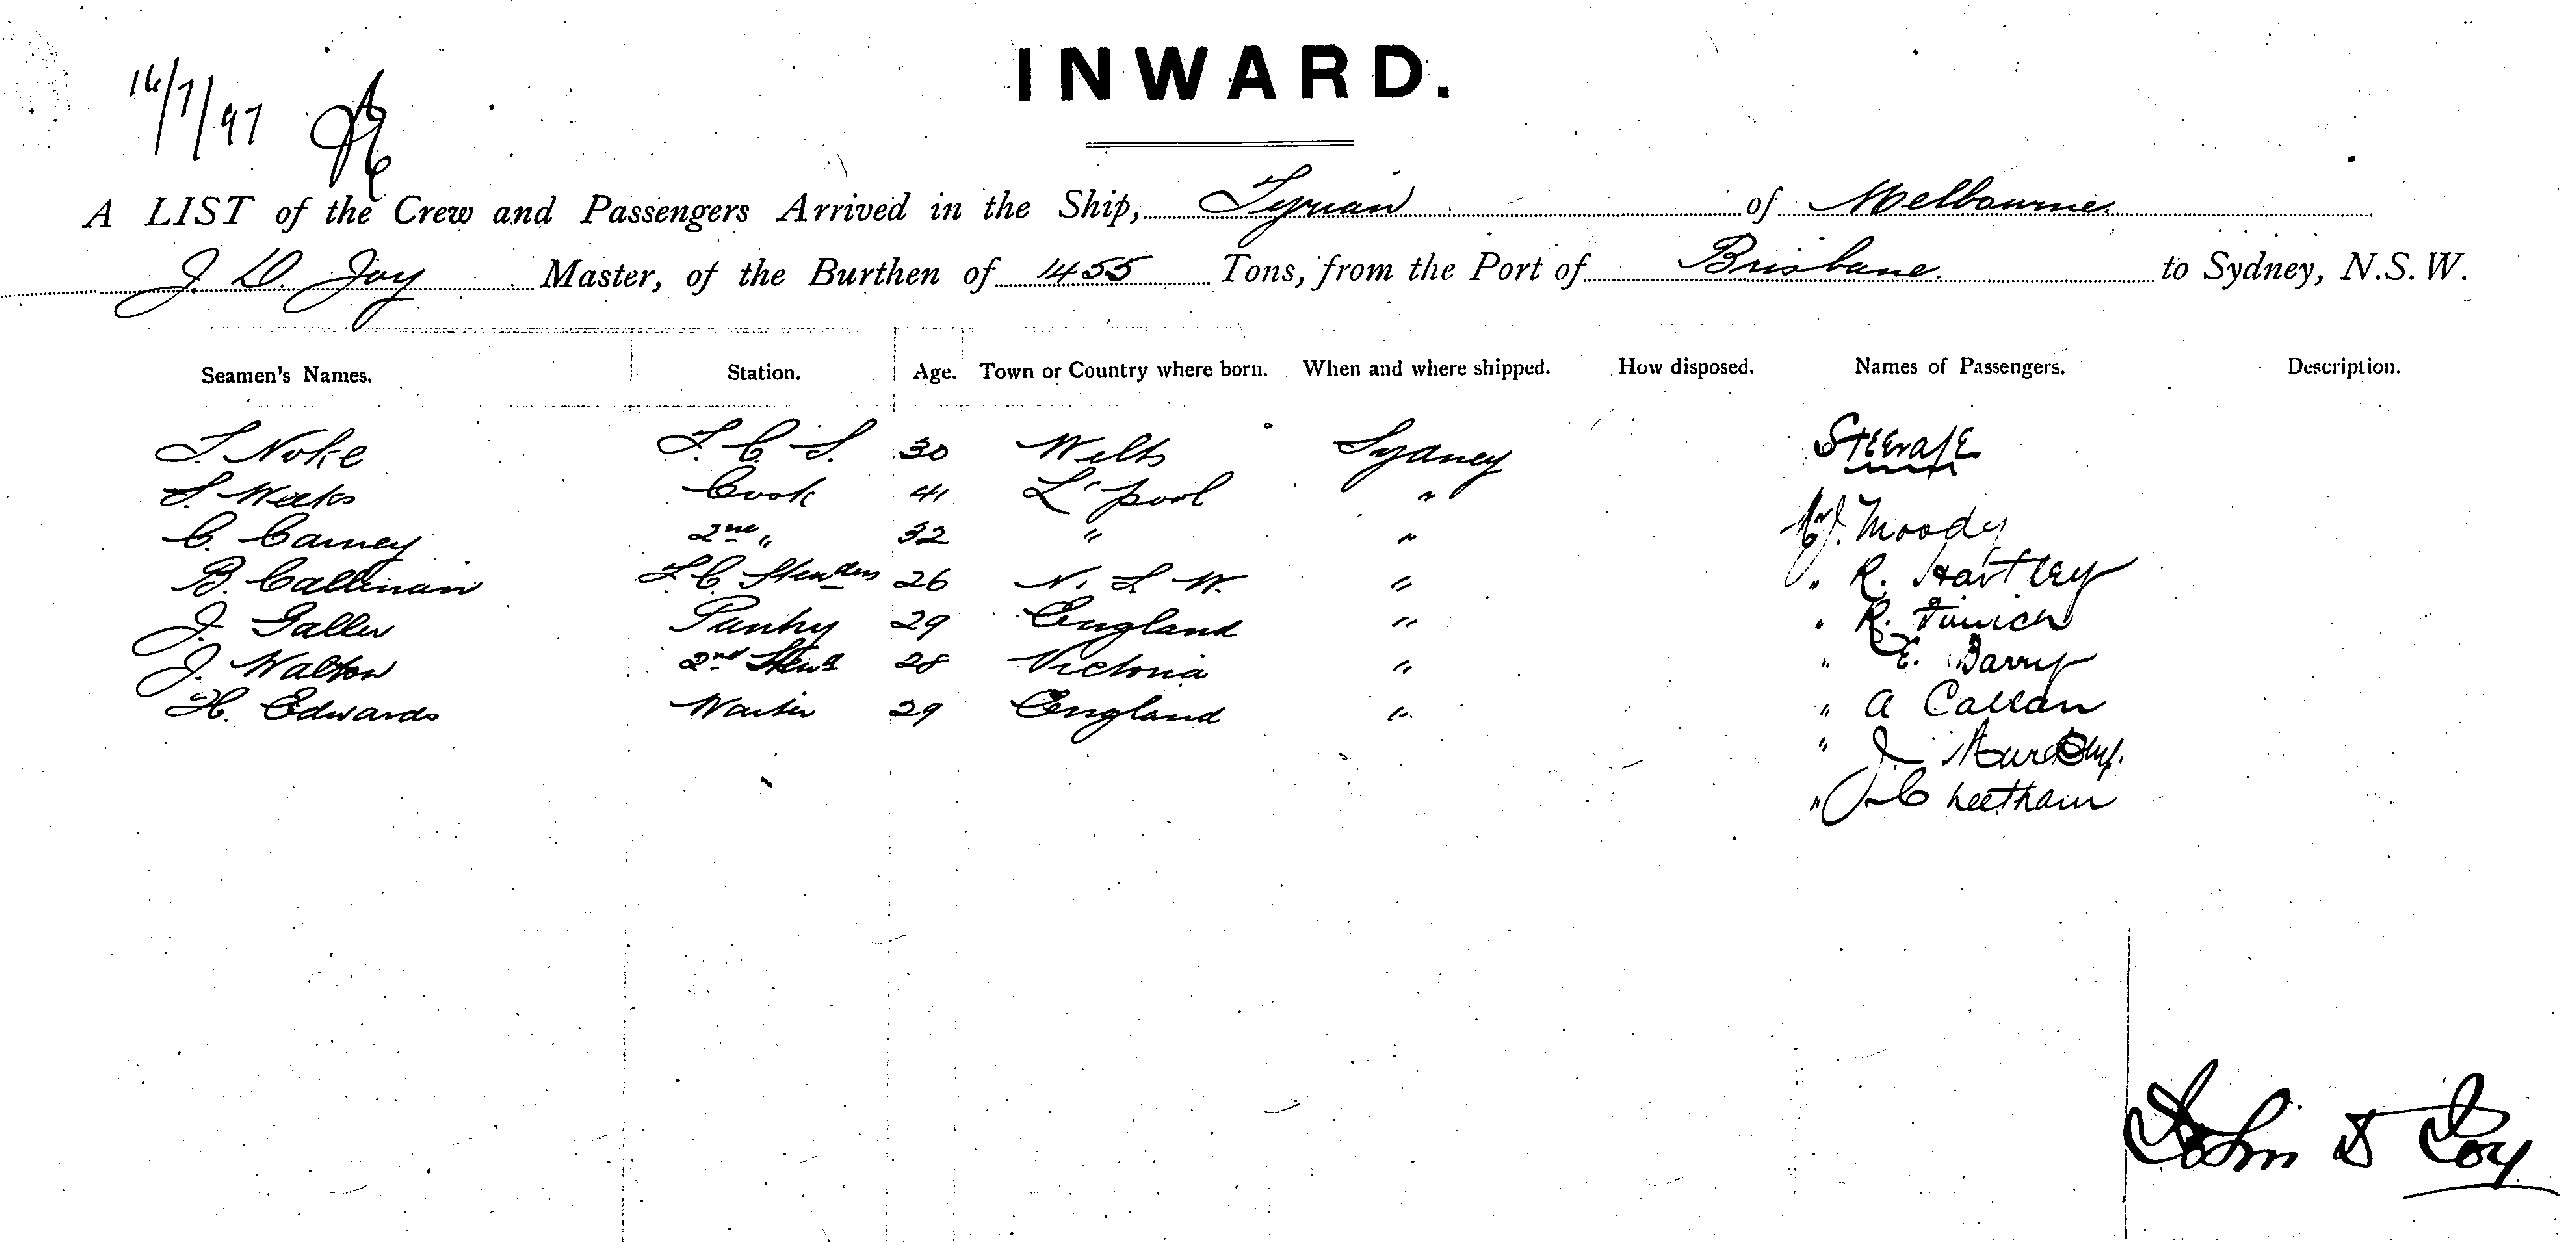 INWARD.
16/7/97
A LIST of the Crew and Passengers Arrived in the Ship, Tyrian of Melbourne
J. D. Joy Master, of the Burthen of 1455 Tons, from the Port of Brisbane. to Sydney, N.S.W.
Seamen's Names. Station. Age. Town or Country where born. When and where shipped. How disposed. Names of Passengers. Description.
Steerage
T. Noke F. C. S. 30 Wilts Sydney
S. Weeks Cook 41 L'pool "
Mr J. Moody
C. Carney 2nd " 32 " "
B. Callinan F.C. Stewdess 26 N. S. W. "
" R. Hartley
J. Galler Pantry 29 England "
" R.
J. Walton 2nd Stewd 28 Victoria "
" E. Barry
H. Edwards Waiter 29 England "
" A Callan
" J. Murphy.
" J Cheetham
John D Joy